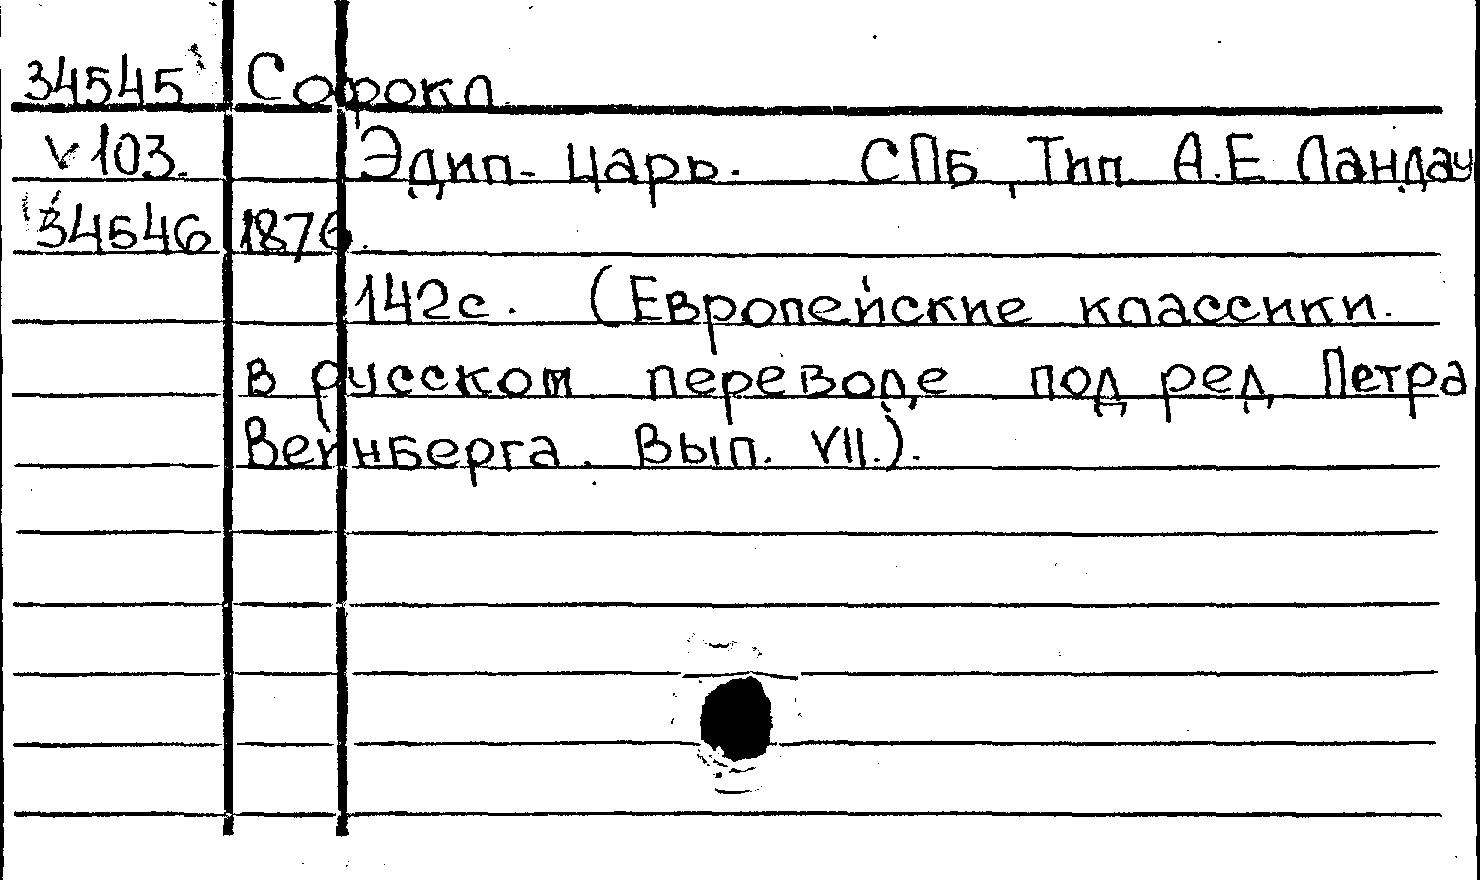 34545 Сорокл
v 103. Эдип-царь. СПБ, Тип А.Е Ландау
34546 1876.
142с. (Европейские классики.
в русском переводе под ред Петра
Вейнберга. Вып. VII.).